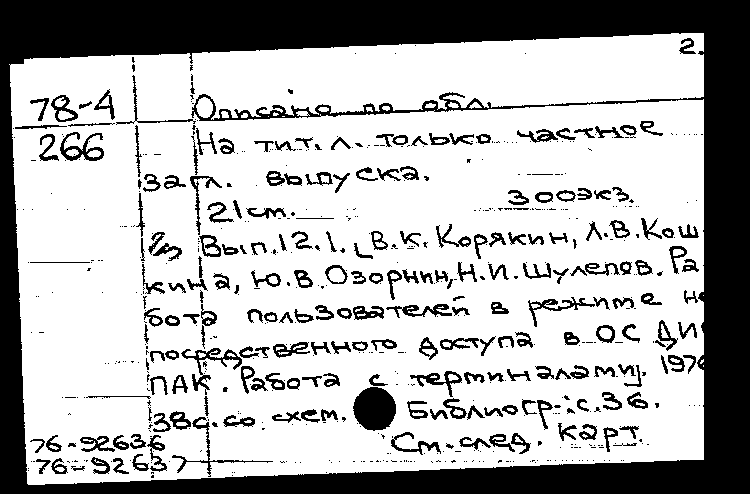 2.
78-4 Описано по обл.
266 На тит. л. только частное
загл. выпуска.
21 см. 300экз.
Вып.12.1. В.К. Корякин, Л.В. Кош
кина, Ю.В. Озорнин, Н.И. Шулепов. Ра
бота пользователей в режиме не
посредственного доступа в ОС ДИ
ПАК. Работа с терминалами. 1976
38с. со схем. Библиогр.: с.36.
76-92636 См. след. карт.
76-92637